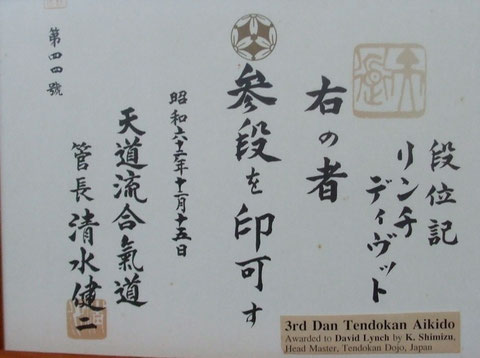 段位記
リンチ
ディヴット
右の者
参段を印可す
昭和六十二年十一月十五日
天道流合氣道
管長 清水健二
第四四號
3rd Dan Tendokan Aikido
Awarded to David Lynch by K. Shimizu,
Head Master, Tendokan Dojo, Japan